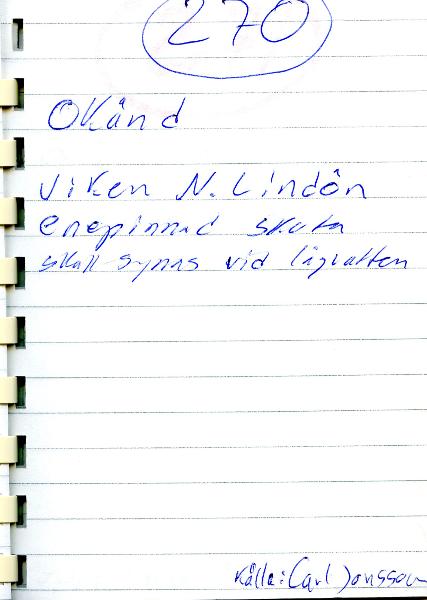 270
Okänd
Viken N. Lindön
enepinnad skuta
skall synas vid lågvatten
Källa: Carl Jonsson